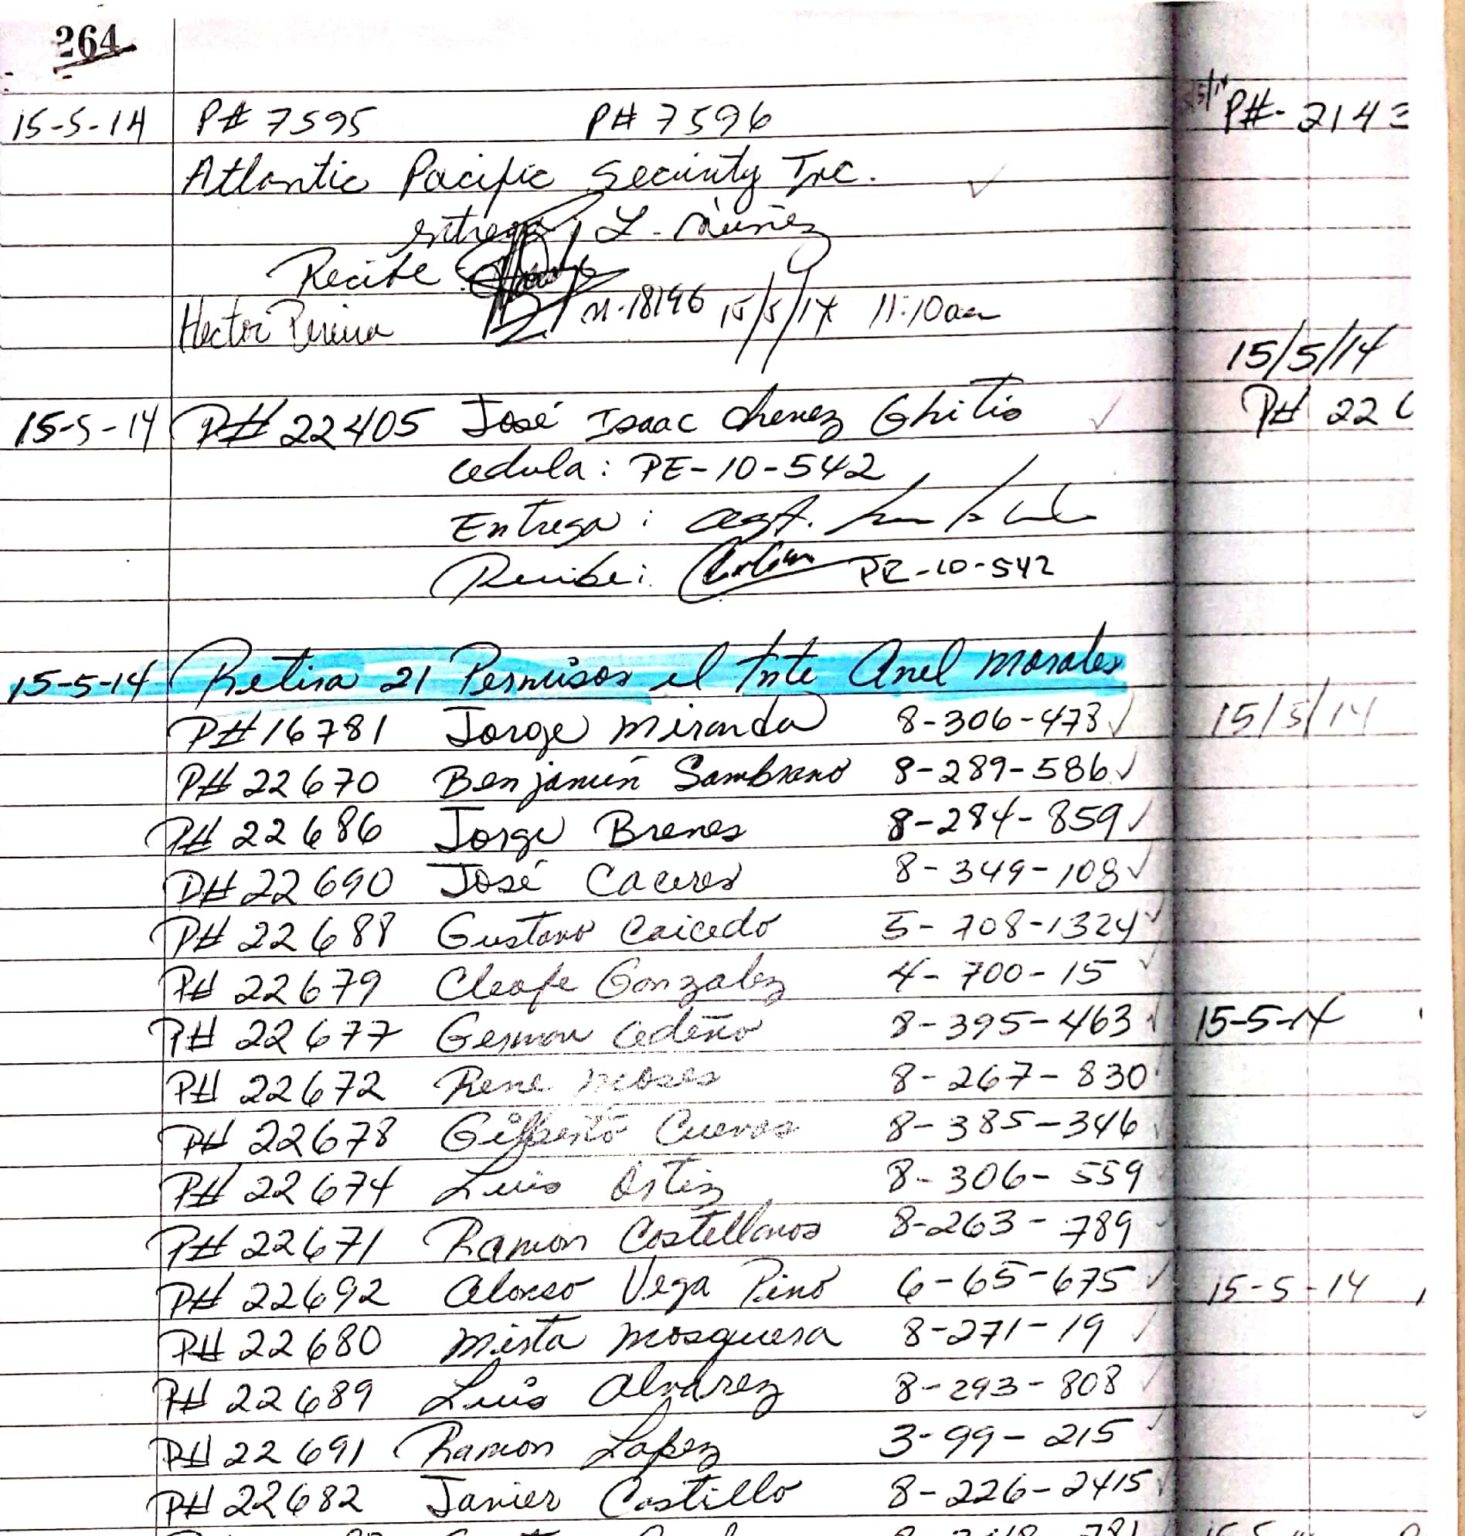 264
15-5-14 P# 7595 P# 7596
Atlantic Pacific Security Inc.
entrega: L. Nuñez
Recibe
Hector Pereira 11:10am 15/5/14
15-5-14 P# 22405 José Isaac Ghitis
cedula: PE-10-542
Entrega: agt.
Recibe: PE-10-542
15-5-14 Retira 21 Permisos el Tnte Anel Morales
P# 16781 Jorge Miranda 8-306-473
P# 22670 Benjamin Sambrano 8-289-586
P# 22686 Jorge Brenes 8-284-859
P# 22690 José Caceres 8-349-108
P# 22688 Gustavo Caicedo 5-708-1324
P# 22679 Cleofe Gonzalez 4-700-15
P# 22677 German Cedeño 8-395-463
P# 22672 Rene Moses 8-267-830
P# 22678 Gilberto Cuevas 8-385-346
P# 22674 Luis Ortiz 8-306-559
P# 22671 Ramon Castellanos 8-263-789
P# 22692 Alonso Vega Pino 6-65-675
P# 22680 Mirta Mosquera 8-271-19
P# 22689 Luis Alvarez 8-293-808
P# 22691 Ramon Lopez 3-99-215
P# 22682 Javier Castillo 8-226-2415
P#- 2143
15/5/14
P# 226
15/5/14
15-5-14
15-5-14